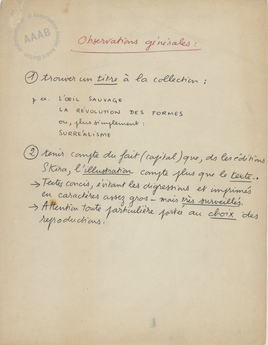 AAAB
Observations générales :
1) trouver un titre à la collection :
p. ex. L'ŒIL SAUVAGE
LA RÉVOLUTION DES FORMES
ou, plus simplement :
SURRÉALISME
2) tenir compte du fait (capital) que, ds les éditions
Skira, l'illustration compte plus que le texte.
→ Textes concis, évitant les digressions et imprimés
en caractères assez gros – mais très surveillés.
→ Attention toute particulière portée au choix des
reproductions.